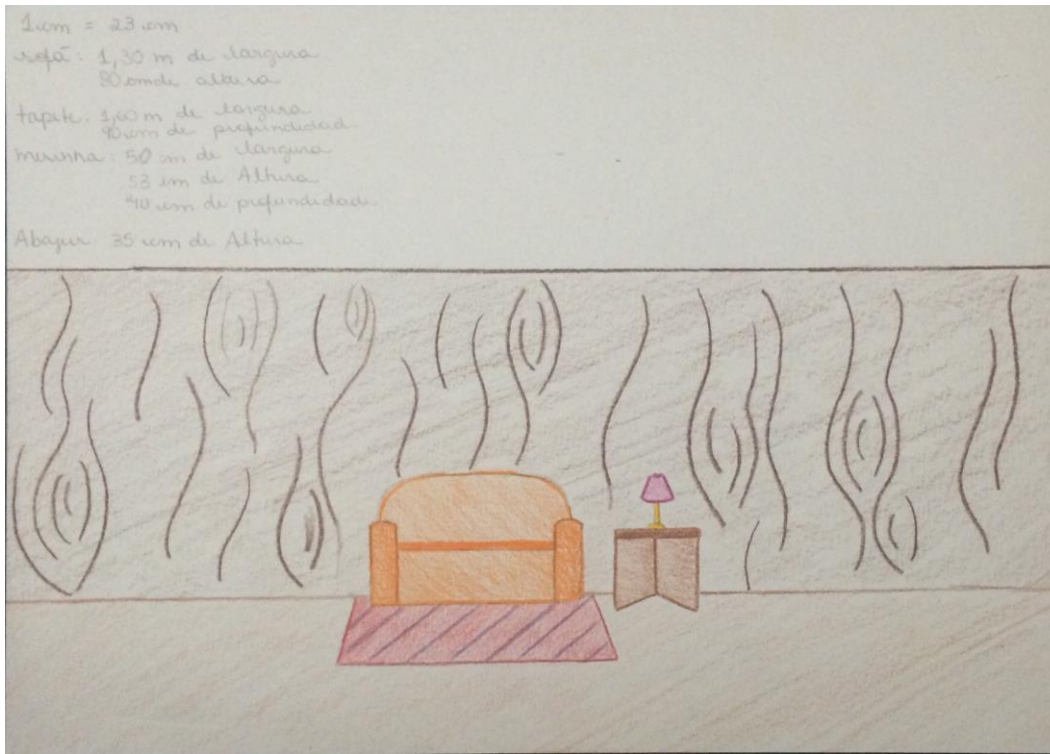 1cm = 23 cm
sofá: 1,30 m de largura
80 cm de altura
tapete: 1,60 m de largura
90 cm de profundidad
mesinha: 50 cm de largura
53 cm de Altura
40 cm de profundidad
Abajur 35 cm de Altura